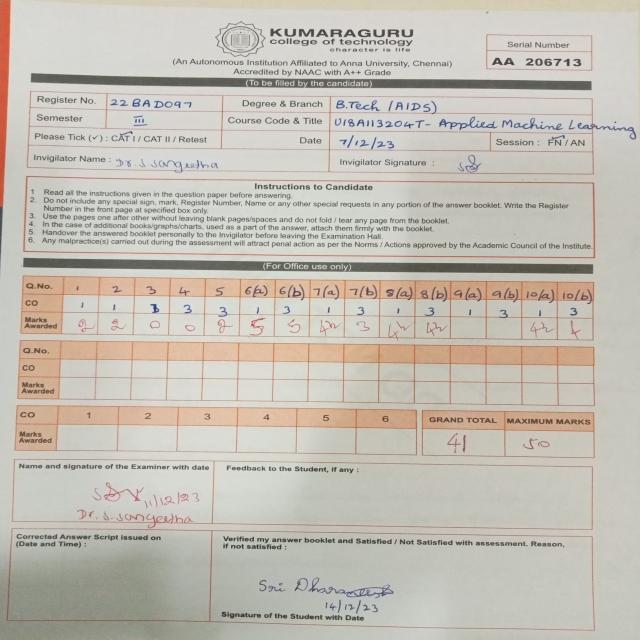 KUMARAGURU
college of technology
character is life
(An Autonomous Institution Affiliated to Anna University, Chennai)
Accredited by NAAC with A++ Grade
Serial Number
AA 206713
(To be filled by the candidate)
Register No. 22BAD097 Degree & Branch B.Tech (AIDS)
Semester III Course Code & Title U18AII3204T - Applied Machine Learning
Please Tick (✓) : CAT I / CAT II / Retest Date 7/12/23 Session : FN / AN
Invigilator Name : Dr. S. Sangeetha Invigilator Signature :
Instructions to Candidate
1 Read all the instructions given in the question paper before answering.
2. Do not include any special sign, mark, Register Number, Name or any other special requests in any portion of the answer booklet. Write the Register
Number in the front page at specified box only.
3. Use the pages one after other without leaving blank pages/spaces and do not fold / tear any page from the booklet.
4. In the case of additional books/graphs/charts, used as a part of the answer, attach them firmly with the booklet.
5. Handover the answered booklet personally to the Invigilator before leaving the Examination Hall.
6. Any malpractice(s) carried out during the assessment will attract penal action as per the Norms / Actions approved by the Academic Council of the Institute.
(For Office use only)
Q.No. 1 2 3 4 5 6(a) 6(b) 7(a) 7(b) 8(a) 8(b) 9(a) 9(b) 10(a) 10(b)
CO 1 1 3 3 1 3 1 3 1 3 1 3 1 3
Marks
Awarded 2 2 0 0 2 5 5 3
Q.No.
CO
Marks
Awarded
CO 1 2 3 4 5 6 GRAND TOTAL MAXIMUM MARKS
Marks
Awarded 41 50
Name and signature of the Examiner with date
11/12/23
Dr. S. Sangeetha
Feedback to the Student, if any :
Corrected Answer Script issued on
(Date and Time) :
Verified my answer booklet and Satisfied / Not Satisfied with assessment. Reason,
if not satisfied :
Sri
14/12/23
Signature of the Student with Date